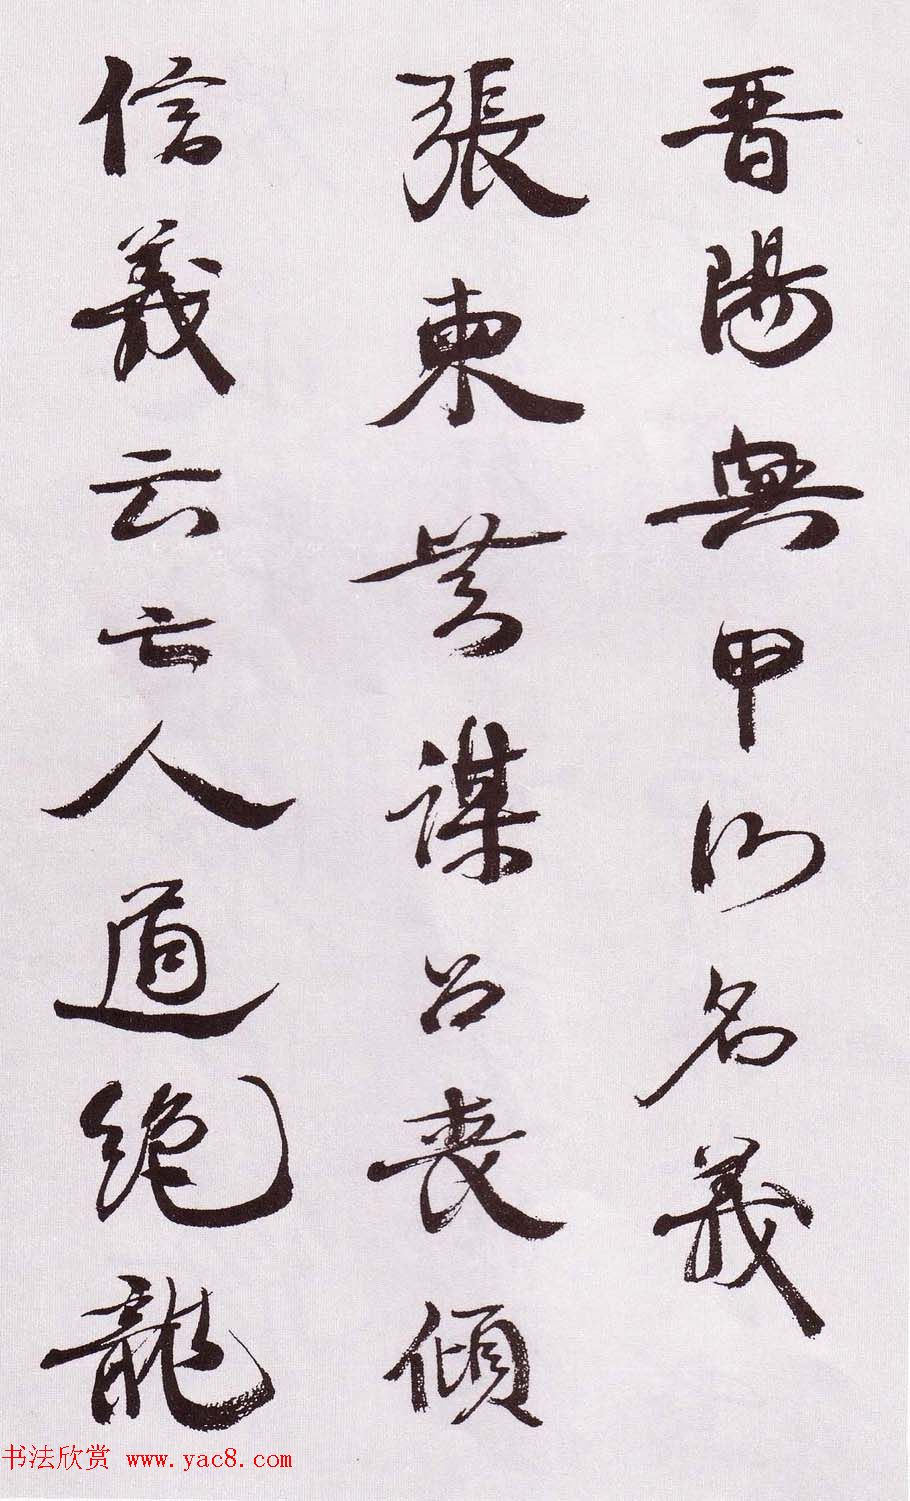 晋陽無甲以名義
張東黄謀以喪傾
信義云亡人道絶龍
书法欣赏 www.yac8.com